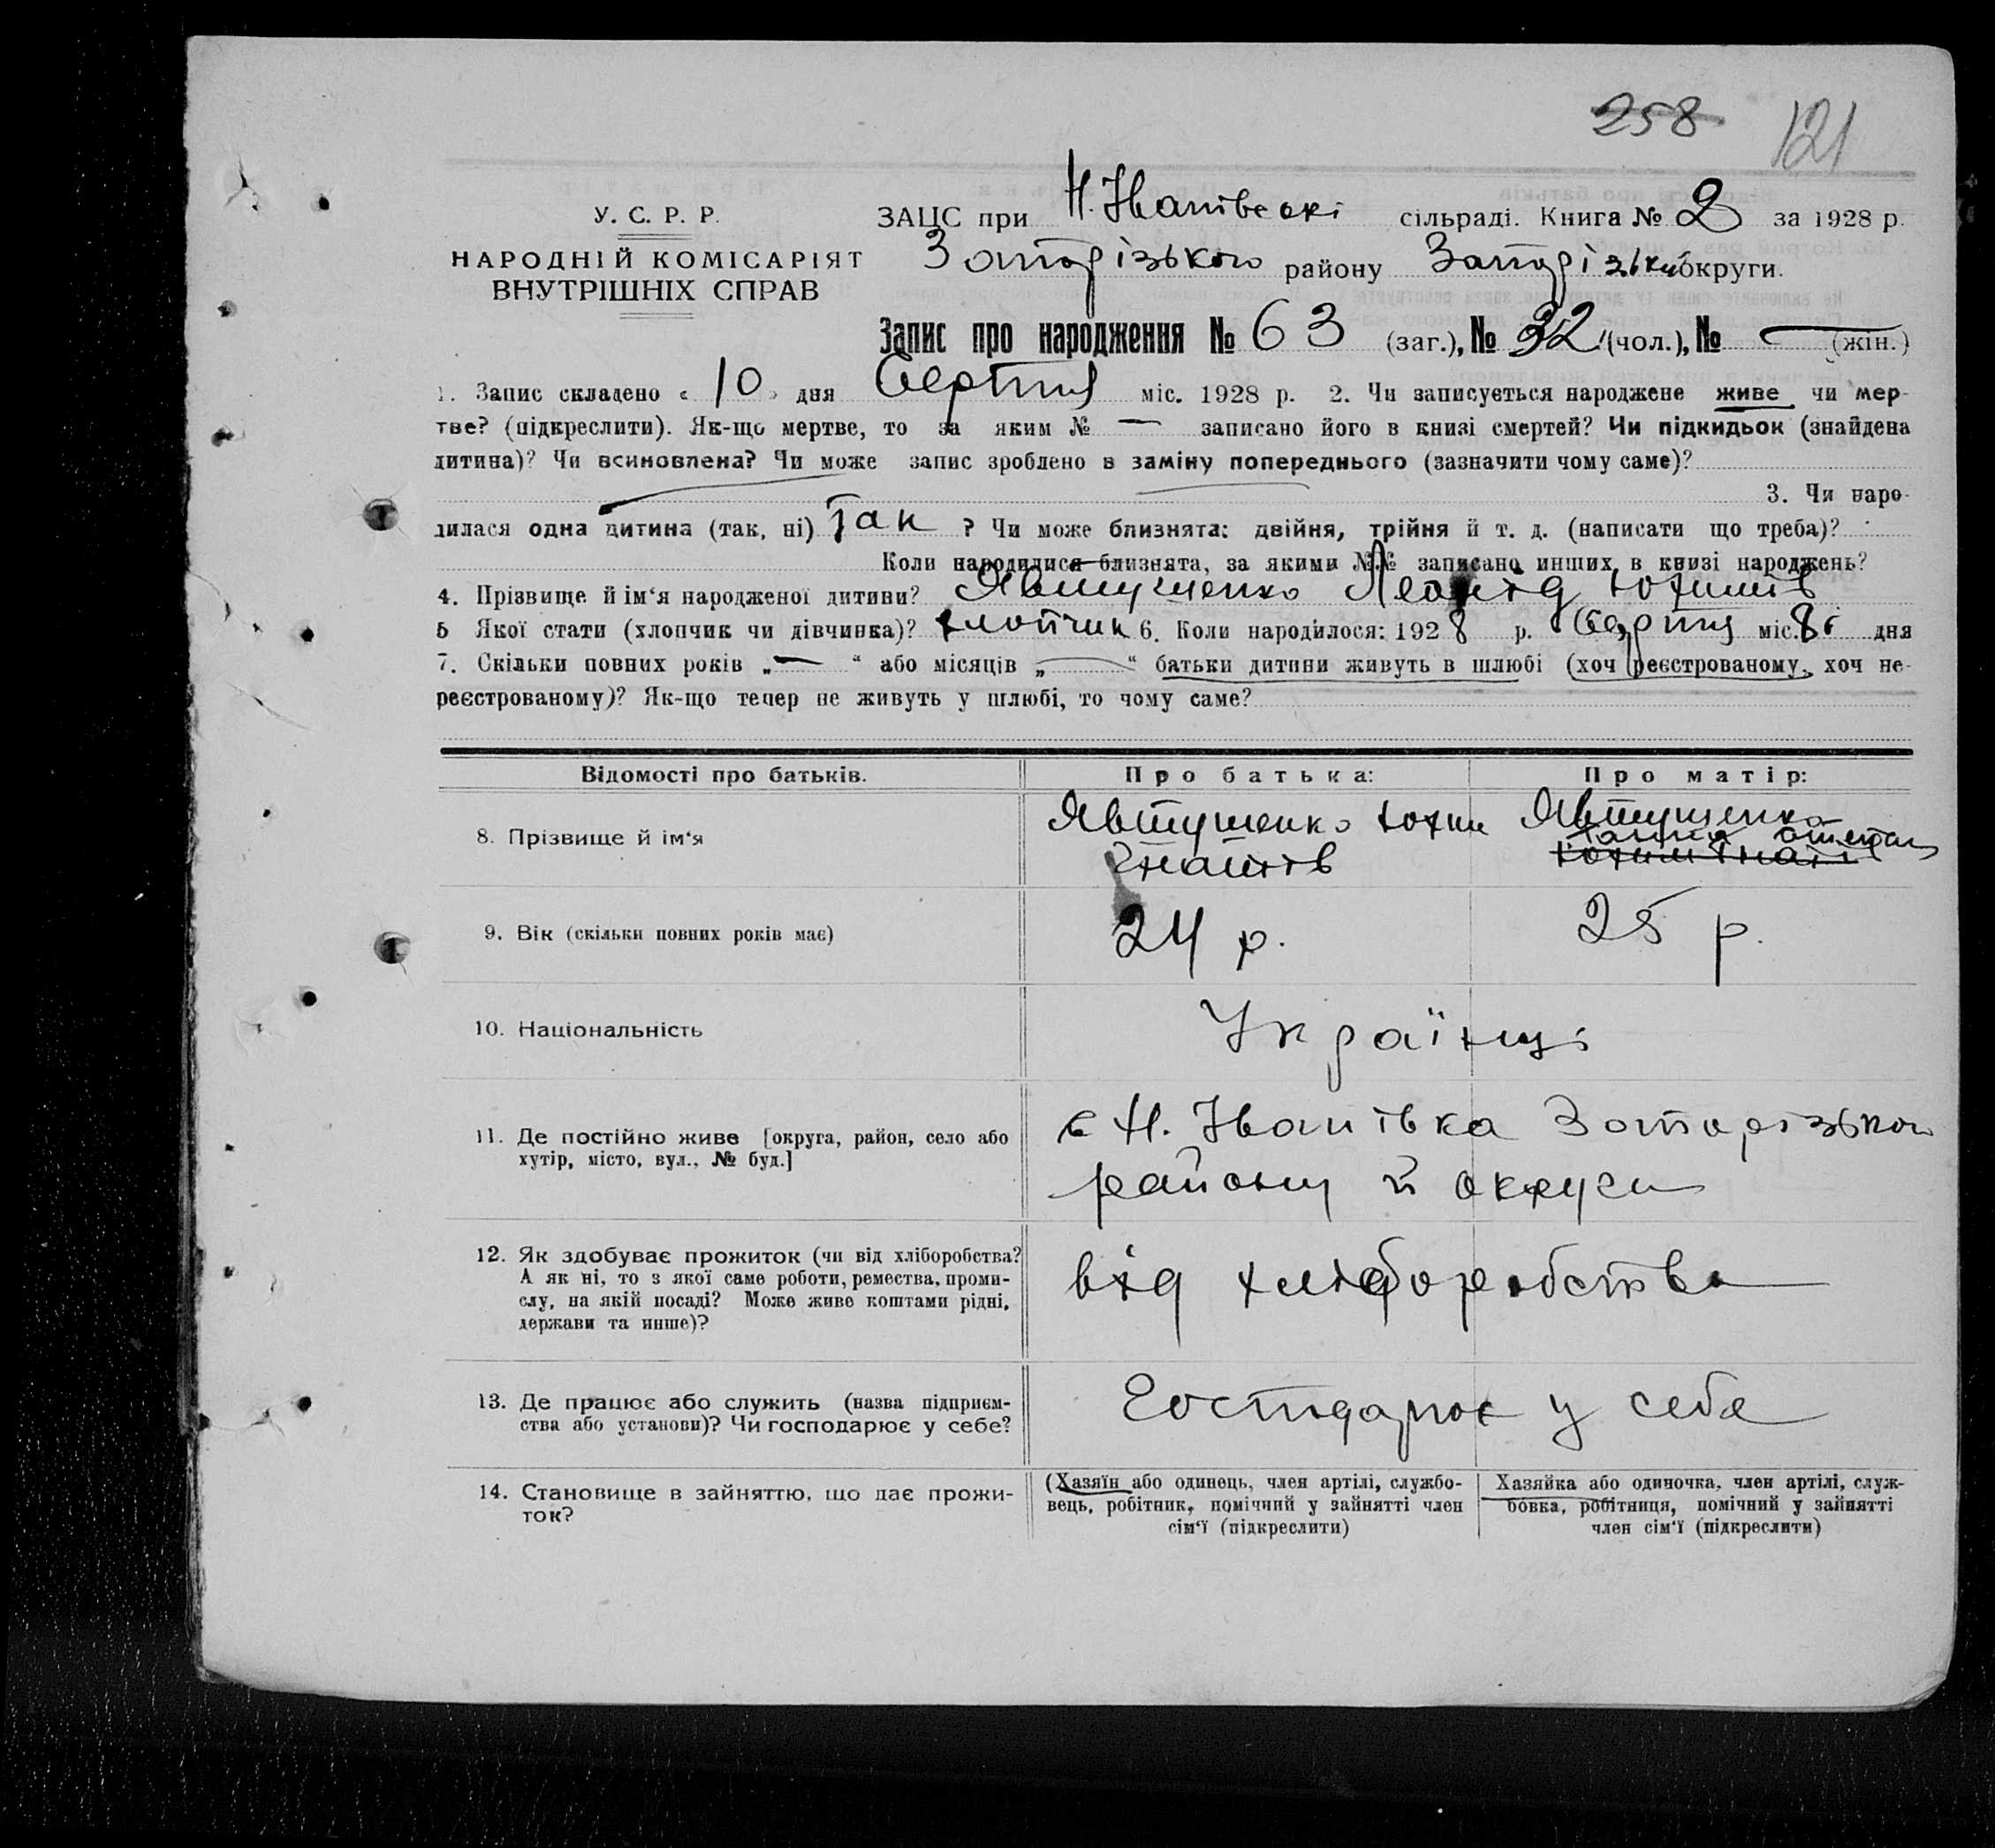 258 121
У. С. Р. Р.
НАРОДНІЙ КОМІСАРІЯТ
ВНУТРІШНІХ СПРАВ
ЗАЦС при Н. Іванівські сільраді. Книга № 2 за 1928 р.
Запорізького району Запорізької округи.
Запис про народження № 63 (заг.), № 32 (чол.), № — (жін.)
1. Запис складено « 10 » дня Серпня міс. 1928 р. 2. Чи записується народжене живе чи мер-
тве? (підкреслити). Як-що мертве, то за яким № — записано його в книзі смертей? Чи підкидьок (знайдена
дитина)? Чи всиновлена? Чи може запис зроблено в заміну попереднього (зазначити чому саме)?
3. Чи наро-
дилася одна дитина (так, ні) Так ? Чи може близнята: двійня, трійня й т. д. (написати що треба)?
Коли народилися близнята, за якими №№ записано инших в книзі народжень?
4. Прізвище й ім‘я народженої дитини? Явтушенко Леонід Юхимів
5 Якої стати (хлопчик чи дівчинка)? хлопчик 6. Коли народилося: 1928 р. Серпня міс. 8 дня
7. Скільки повних років „—“ або місяців „—“ батьки дитини живуть в шлюбі (хоч реєстрованому, хоч не-
реєстрованому)? Як-що тепер не живуть у шлюбі, то чому саме?
Відомості про батьків. Про батька: Про матір:
8. Прізвище й ім‘я Явтушенко Юхим Явтушенко
Гнатів
9. Вік (скільки повних років має) 24 р. 25 р.
10. Національність Українці
11. Де постійно живе [округа, район, село або с Н. Іванівка Запорізького
хутір, місто, вул., № буд.] району й округи
12. Як здобуває прожиток (чи від хліборобства? від хліборобства
А як ні, то з якої саме роботи, ремества, проми-
слу, на якій посаді? Може живе коштами рідні,
держави та инше)?
13. Де працює або служить (назва підприєм- Господарює у себе
ства або установи)? Чи господарює у себе?
14. Становище в зайняттю, що дає прожи-
ток?
(Хазяїн або одинець, члея артілі, службо-
вець, робітник, помічний у зайнятті член
сім‘ї (підкреслити)
Хазяйка або одиночка, член артілі, служ-
бовка, робітниця, помічний у зайнятті
член сім‘ї (підкреслити)